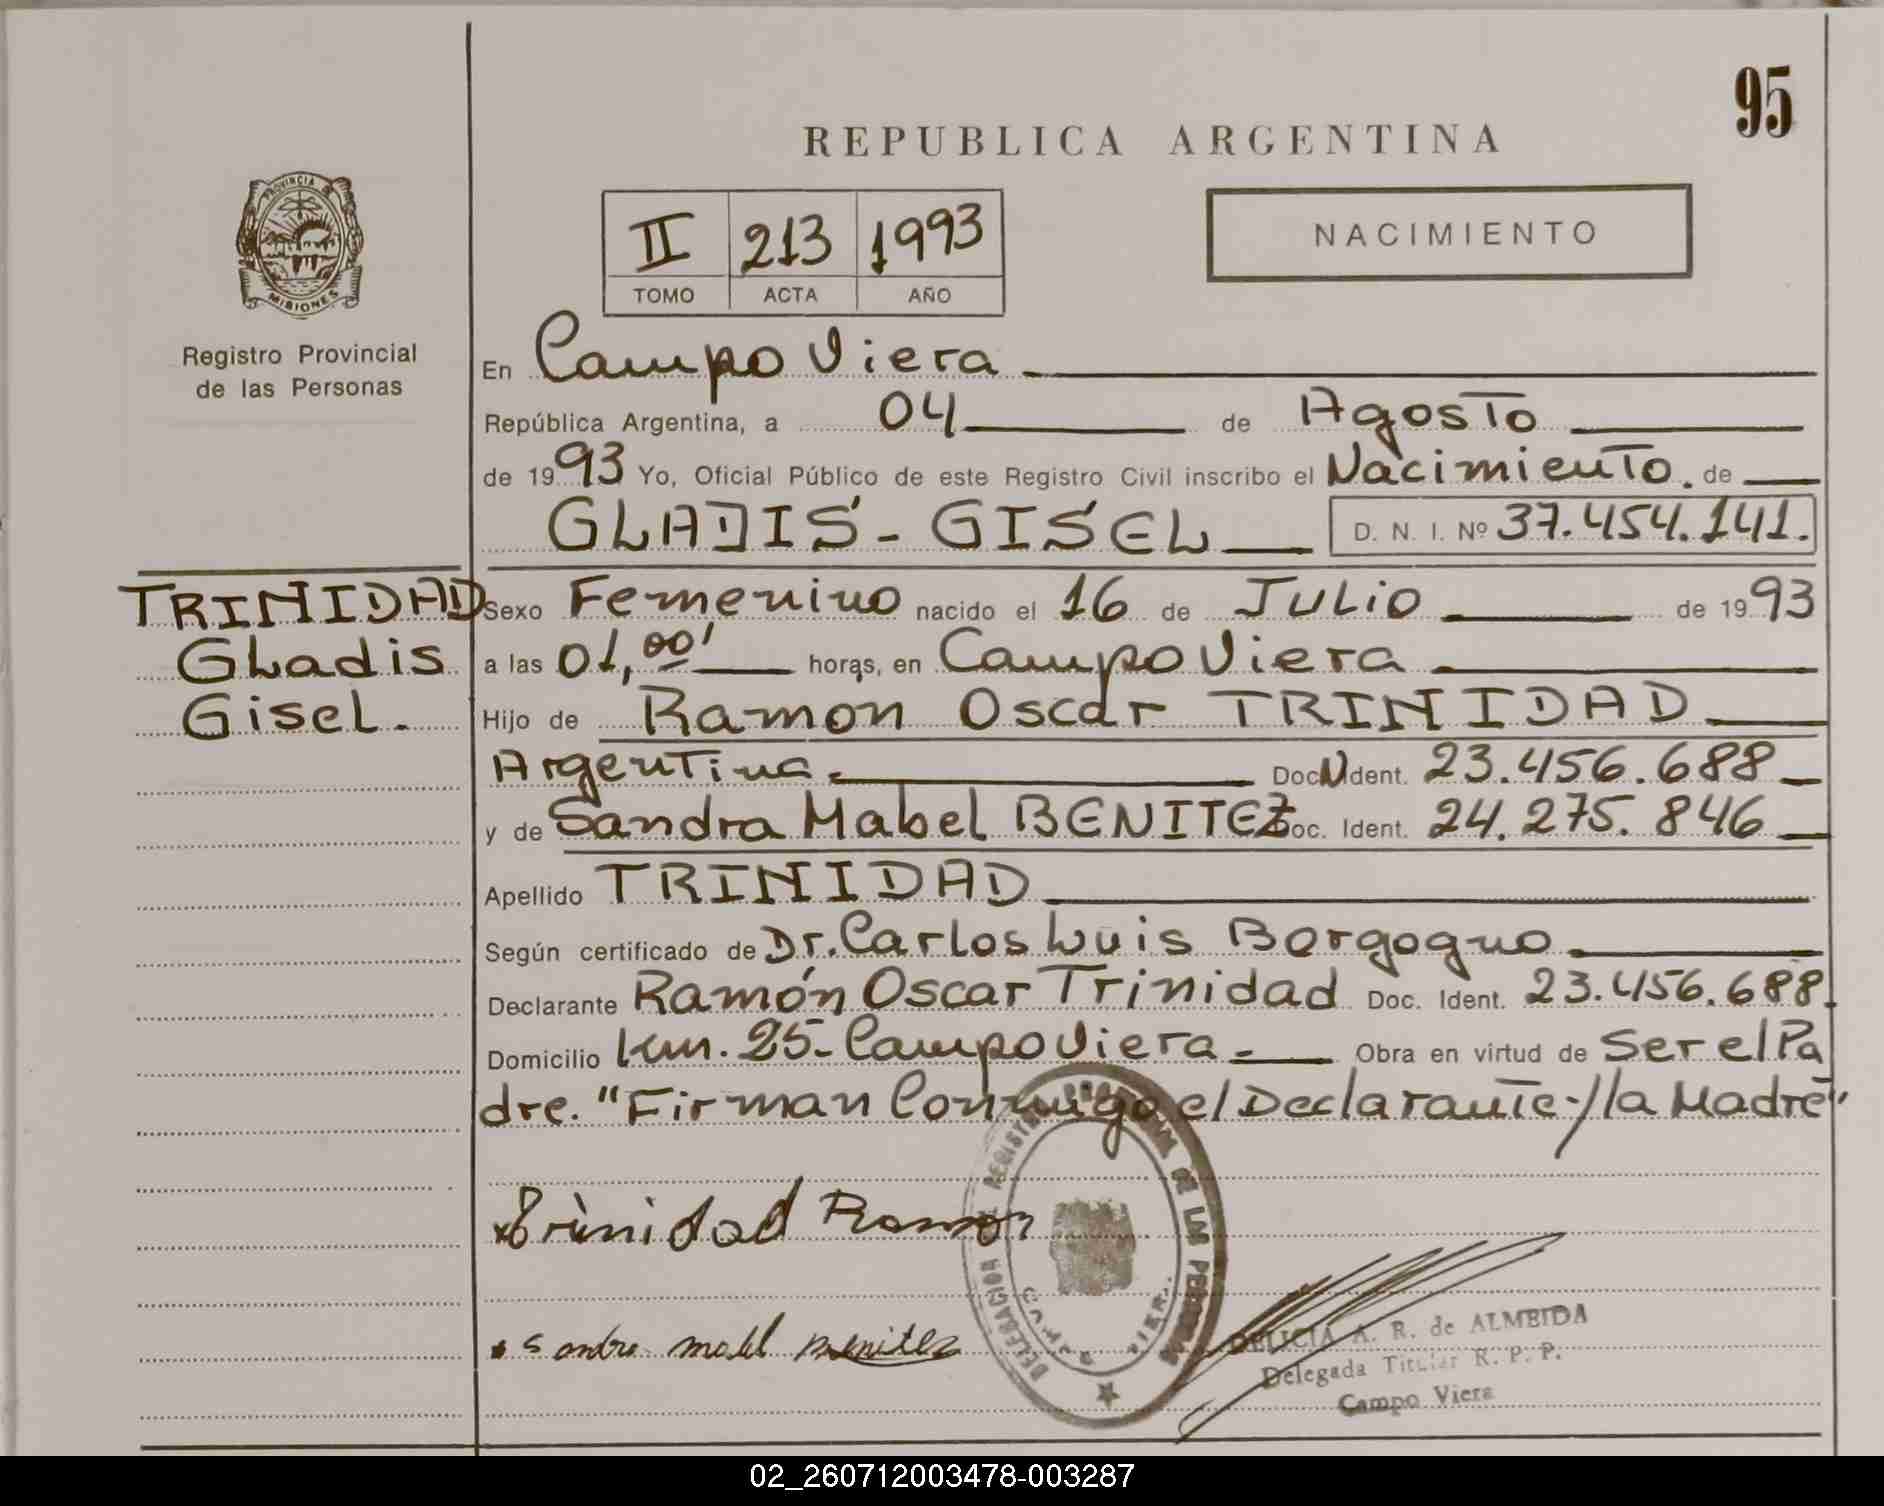 95
REPUBLICA ARGENTINA
PROVINCIA DE
MISIONES
Registro Provincial
de las Personas
II 213 1993
TOMO ACTA AÑO
NACIMIENTO
En Campo Viera
República Argentina, a 04 de Agosto
de 1993 Yo, Oficial Público de este Registro Civil inscribo el Nacimiento. de
GLADIS - GISEL D. N. I. Nº 37.454.141.
TRINIDAD
Gladis
Gisel.
Sexo Femenino nacido el 16 de JULIO de 1993
a las 01,00' horas, en Campo Viera
Hijo de Ramon Oscar TRINIDAD
Argentina. Doc. Ident. 23.456.688
y de Sandra Mabel BENITEZ Doc. Ident. 24.275.846
Apellido TRINIDAD
Según certificado de Dr. Carlos Luis Borgogno
Declarante Ramón Oscar Trinidad Doc. Ident. 23.456.688.
Domicilio km. 25- Campo Viera. Obra en virtud de Ser el Pa
dre. "Firman Conmigo el Declarante y la Madre"
Trinidad Ramon
Sandra mabel Benitez
DELEGACION REGISTRO DE LAS PERSONAS
CAMPO VIERA
DELICIA A. R. de ALMEIDA
Delegada Titular R. P. P.
Campo Viera
02_260712003478-003287